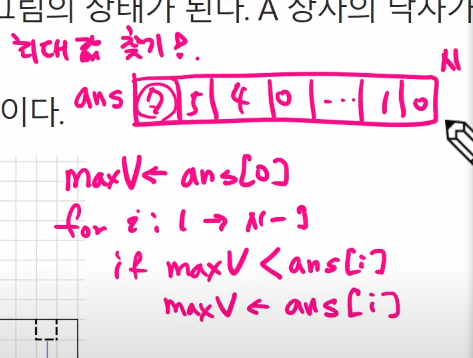 그림의 상태가 된다. A 상자의 낙차가
최대 값 찾기?.
N
이다. ans 7 5 4 0 ... 1 0
maxV← ans[0]
for i : 1 → N-1
if maxV < ans[i]
maxV ← ans[i]